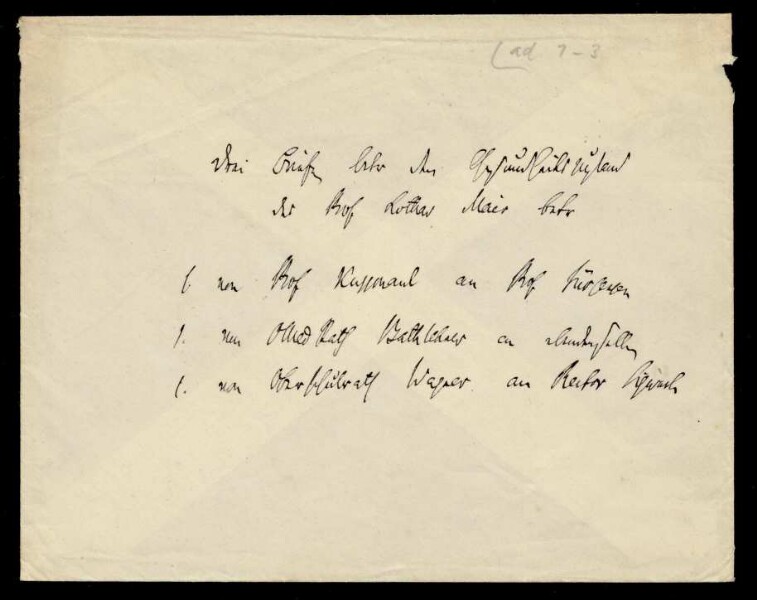 (ad 1-3
Drei Briefe betr den Gesundheitszustand
des Prof Lothar Maier betr
1. von Prof Kussmaul an Prof Jürgensen
1. von OMedRath Battlehner an denselben
1. von Oberschulrath Wagner an Rector